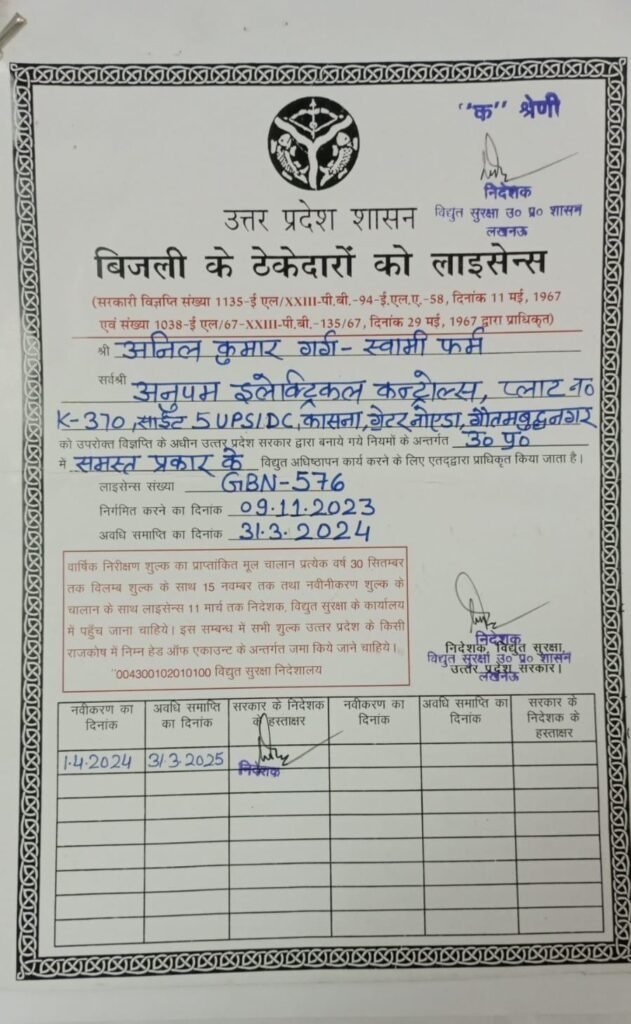 "क" श्रेणी
निदेशक
विद्युत सुरक्षा उ० प्र० शासन
लखनऊ
उत्तर प्रदेश शासन
बिजली के ठेकेदारों को लाइसेन्स
(सरकारी विज्ञप्ति संख्या 1135-ई एल/XXIII-पी.बी.-94-ई.एल.ए.-58, दिनांक 11 मई, 1967
एवं संख्या 1038-ई एल/67-XXIII-पी.बी.-135/67, दिनांक 29 मई, 1967 द्वारा प्राधिकृत)
श्री अनिल कुमार गर्ग- स्वामी फर्म
सर्वश्री अनुपम इलेक्ट्रिकल कन्ट्रोल्स, प्लाट नं०
K-370, साईट 5 UPSIDC, कासना, ग्रेटर नोएडा, गौतमबुद्धनगर
को उपरोक्त विज्ञप्ति के अधीन उत्तर प्रदेश सरकार द्वारा बनाये गये नियमों के अन्तर्गत उ० प्र०
में समस्त प्रकार के विद्युत अधिष्ठापन कार्य करने के लिए एतद्द्वारा प्राधिकृत किया जाता है।
लाइसेंस संख्या GBN-576
निर्गमित करने का दिनांक 09.11.2023
अवधि समाप्ति का दिनांक 31.3.2024
वार्षिक निरीक्षण शुल्क का प्राप्तांकित मूल चालान प्रत्येक वर्ष 30 सितम्बर
तक विलम्ब शुल्क के साथ 15 नवम्बर तक तथा नवीनीकरण शुल्क के
चालान के साथ लाइसेंस 11 मार्च तक निदेशक, विद्युत सुरक्षा के कार्यालय
में पहुँच जाना चाहिये। इस सम्बन्ध में सभी शुल्क उत्तर प्रदेश के किसी
राजकोष में निम्न हेड ऑफ एकाउन्ट के अन्तर्गत जमा किये जाने चाहिये।
"004300102010100 विद्युत सुरक्षा निदेशालय
निदेशक
निदेशक, विद्युत सुरक्षा,
विद्युत सुरक्षा उ० प्र० शासन
उत्तर प्रदेश सरकार।
लखनऊ
नवीकरण का दिनांक
अवधि समाप्ति का दिनांक
सरकार के निदेशक के हस्ताक्षर
नवीकरण का दिनांक
अवधि समाप्ति का दिनांक
सरकार के निदेशक के हस्ताक्षर
1.4.2024 31.3.2025
निदेशक